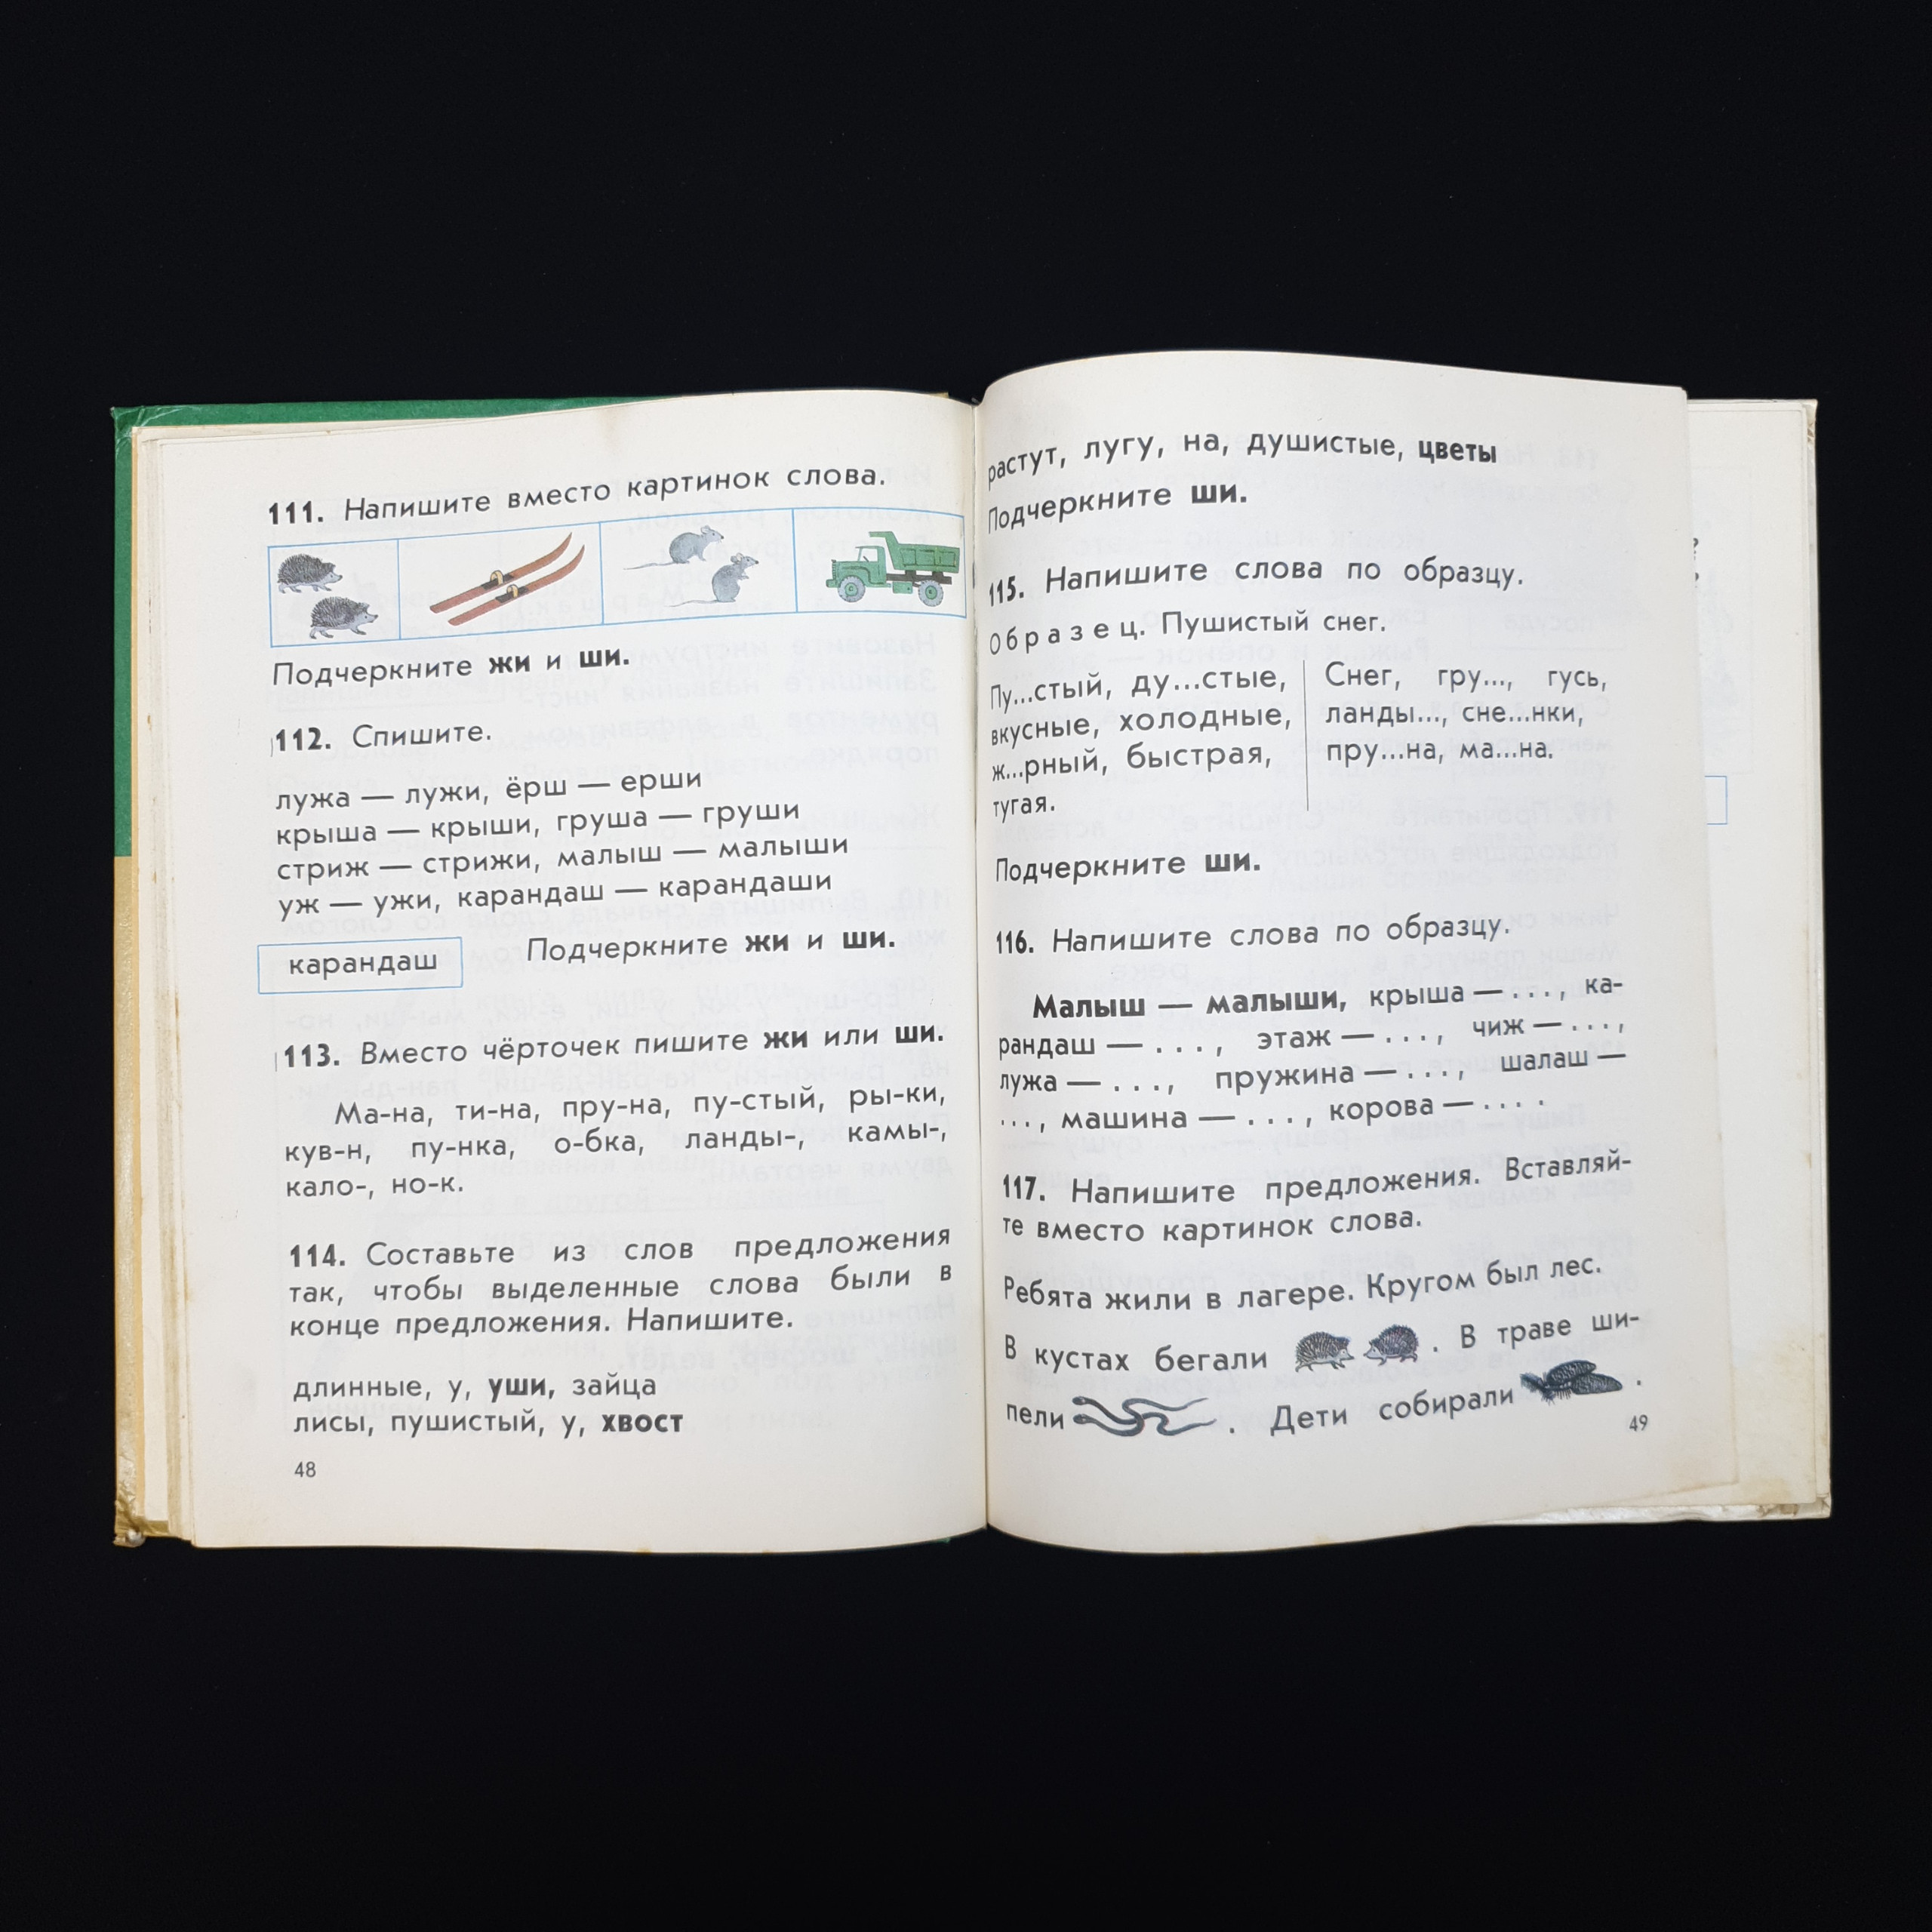 111. Напишите вместо картинок слова.
Подчеркните жи и ши.
112. Спишите.
лужа — лужи, ёрш — ерши
крыша — крыши, груша — груши
стриж — стрижи, малыш — малыши
уж — ужи, карандаш — карандаши
карандаш
Подчеркните жи и ши.
113. Вместо чёрточек пишите жи или ши.
Ма-на, ти-на, пру-на, пу-стый, ры-ки,
кув-н, пу-нка, о-бка, ланды-, камы-,
кало-, но-к.
114. Составьте из слов предложения
так, чтобы выделенные слова были в
конце предложения. Напишите.
длинные, у, уши, зайца
лисы, пушистый, у, хвост
48
растут, лугу, на, душистые, цветы
Подчеркните ши.
115. Напишите слова по образцу.
Образец. Пушистый снег.
Пу...стый, ду...стые,
вкусные, холодные,
ж...рный, быстрая,
тугая.
Снег, гру..., гусь,
ланды..., сне...нки,
пру...на, ма...на.
Подчеркните ши.
116. Напишите слова по образцу.
Малыш — малыши, крыша — ..., ка-
рандаш — ..., этаж — ..., чиж — ...,
лужа — ..., пружина — ..., шалаш —
..., машина — ..., корова — ... .
117. Напишите предложения. Вставляй-
те вместо картинок слова.
Ребята жили в лагере. Кругом был лес.
В кустах бегали . В траве ши-
пели . Дети собирали .
49